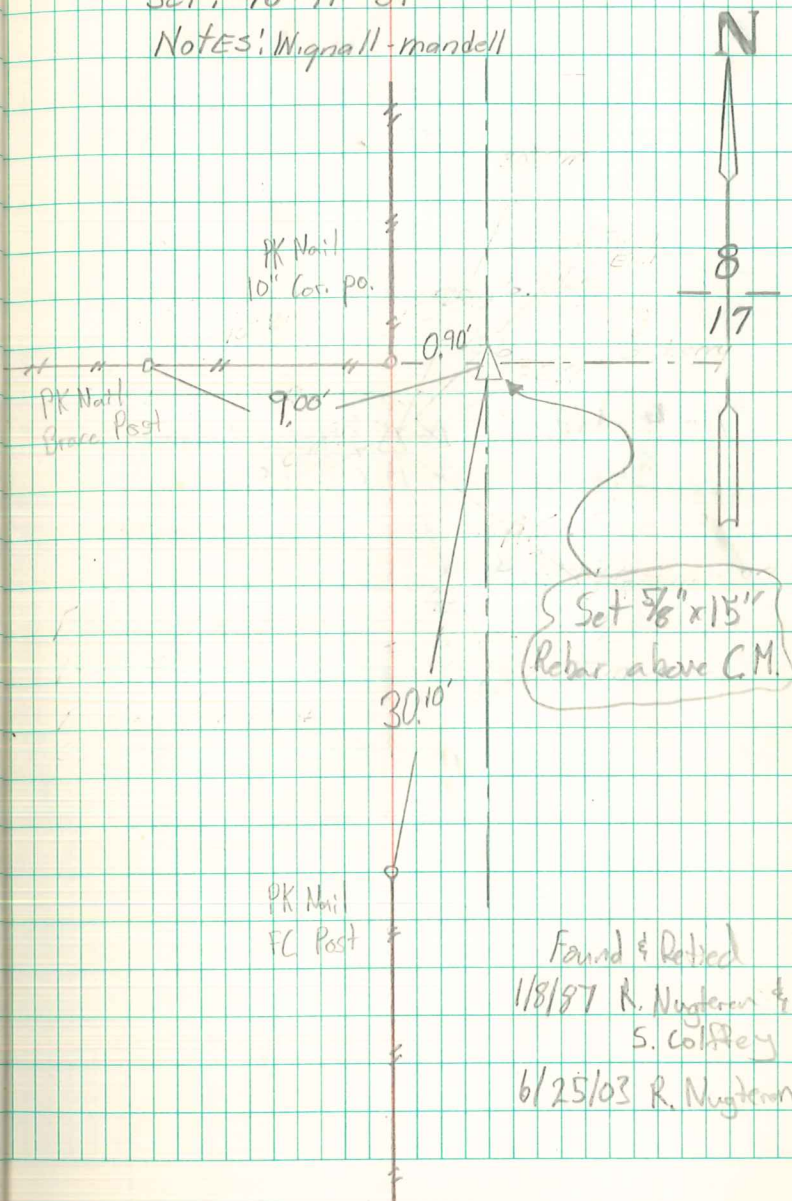 Notes: Wignall-mandell
N
PK Nail
10" Cor. po.
8
17
0.90'
PK Nail
Brace Post
9.00'
Set 5/8" x 15"
Rebar above C.M.
30.10'
PK Nail
FC Post
Found & Retied
1/8/87 R. Nugteren &
S. Colffey
6/25/03 R. Nugteren